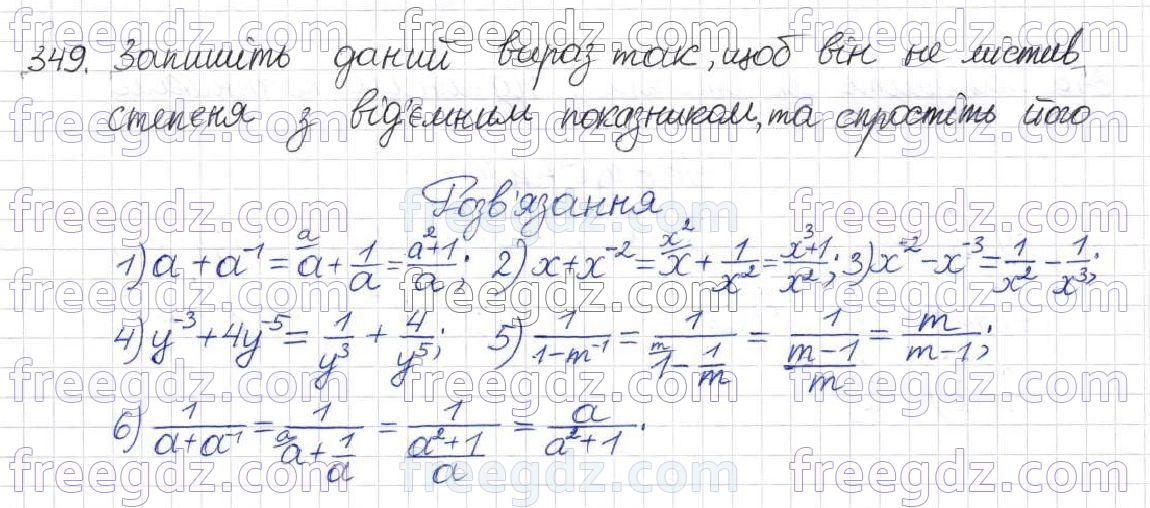 349. Запишіть даний вираз так, щоб він не містив
степеня з від'ємним показником, та спростіть його
Розв'язання
1) a + a⁻¹ = ᵃ/a + 1/a = (a²+1)/a; 2) x + x⁻² = ˣ²/x + 1/x² = (x³+1)/x²; 3) x⁻² - x⁻³ = 1/x² - 1/x³;
4) y⁻³ + 4y⁻⁵ = 1/y³ + 4/y⁵; 5) 1/(1-m⁻¹) = 1/(ᵐ/1 - 1/m) = 1/((m-1)/m) = m/(m-1);
6) 1/(a+a⁻¹) = 1/(ᵃ/a + 1/a) = 1/((a²+1)/a) = a/(a²+1).
freegdz.com